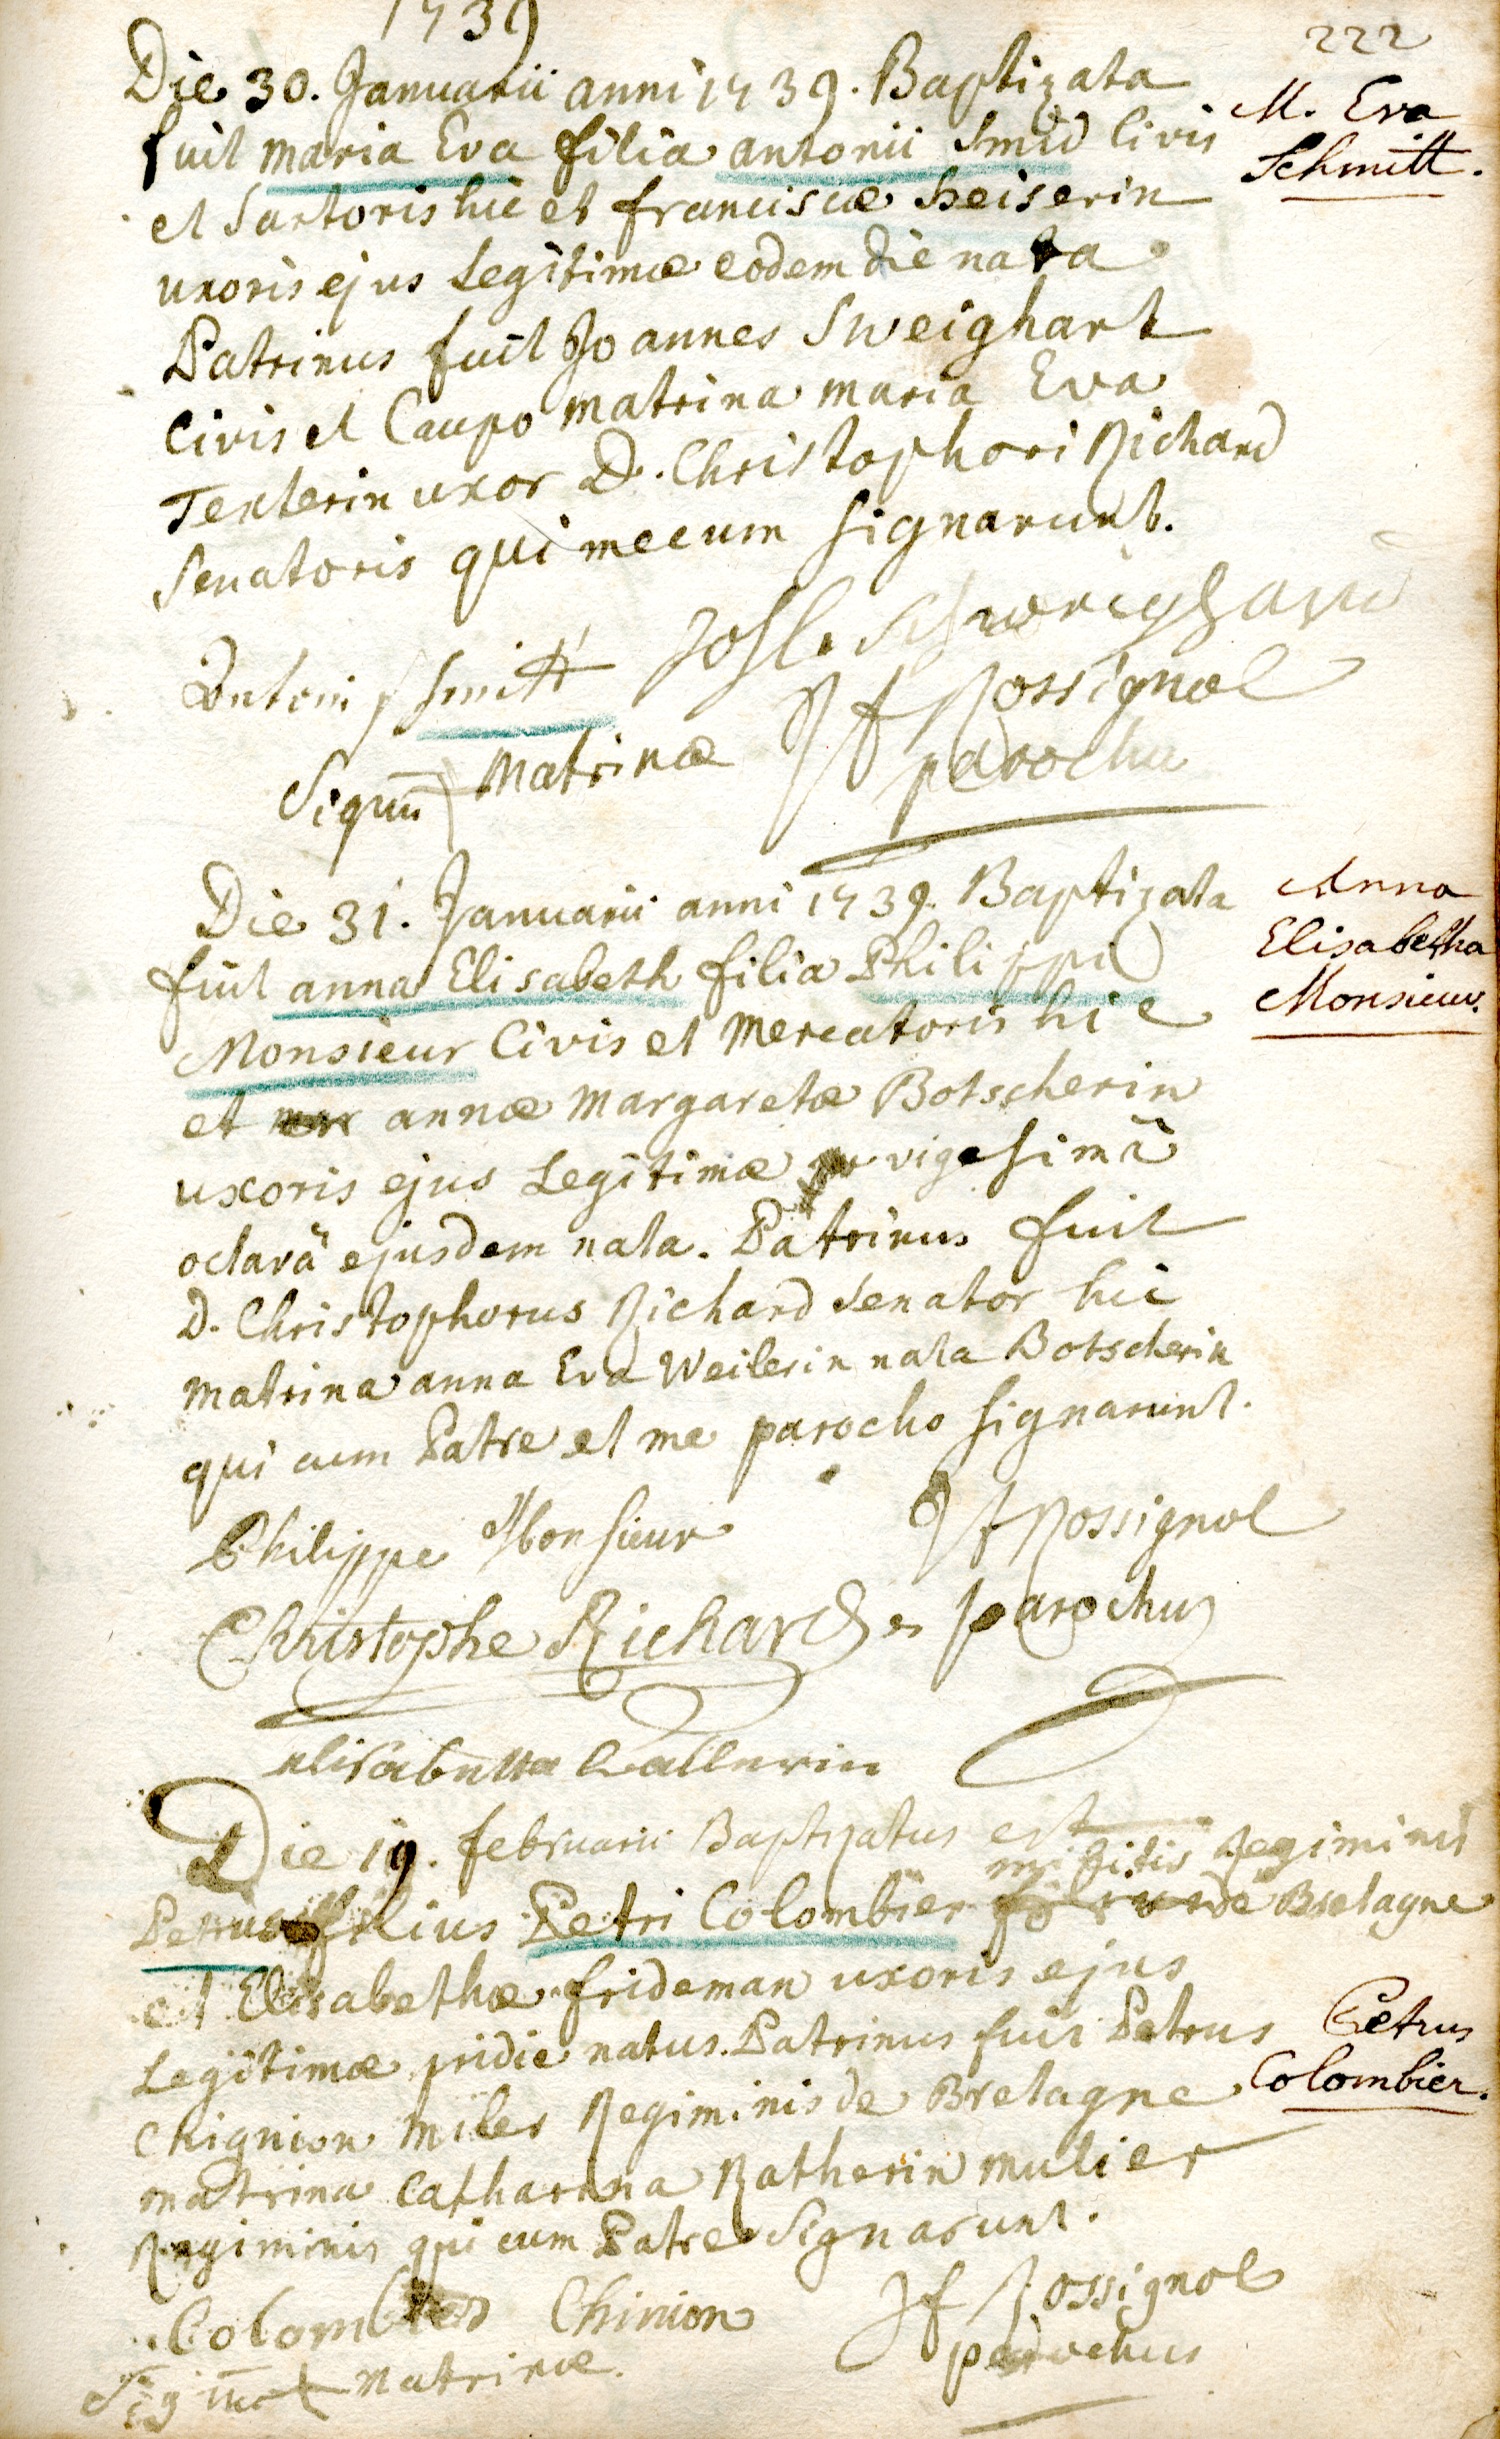 1739
222
Die 30. Januarii anni 1739. Baptizata
fuit maria Eva filia antonii Smid Civis
et Sartoris hic et franciscæ heiserin
uxoris ejus Legitimæ eodem die nata
Patrinus fuit Joannes Sweighart
Civis et Caupo matrina maria Eva
Texterin uxor D. Christophori Richard
Senatoris qui mecum signarunt.
M. Eva
Schmitt.
Antoni Schmitt
JfRossignol
parochus
Signum matrinæ
Die 31. Januarii anni 1739. Baptizata
fuit anna Elisabeth filia Philippi
Monsieur Civis et Mercatoris hic
et annæ Margaretæ Botscherin
uxoris ejus Legitimæ vigesimâ
octavâ ejusdem nata. Patrinus fuit
D. Christophorus Richard Senator hic
Matrina anna Eva Weilerin nata Botscherin
qui cum Patre et me parocho signarunt.
Anna
Elisabetha
Monsieur.
Philippe Monsieur
JfRossignol
Christophe Richard
parochus
Die 19. februarii Baptizatus est
militis Regiminis
Petrus filius Petri Colombier de Bretagne
et Elisabethæ frideman uxoris ejus
Legitimæ pridie natus. Patrinus fuit Petrus
Chignion miles Regiminis de Bretagne
matrina Catharina Ratherin mulier
Regiminis qui cum Patre Signarunt.
Petrus
Colombier.
Colombier Chinion
Jf Rossignol
parochus
Signum matrinæ.